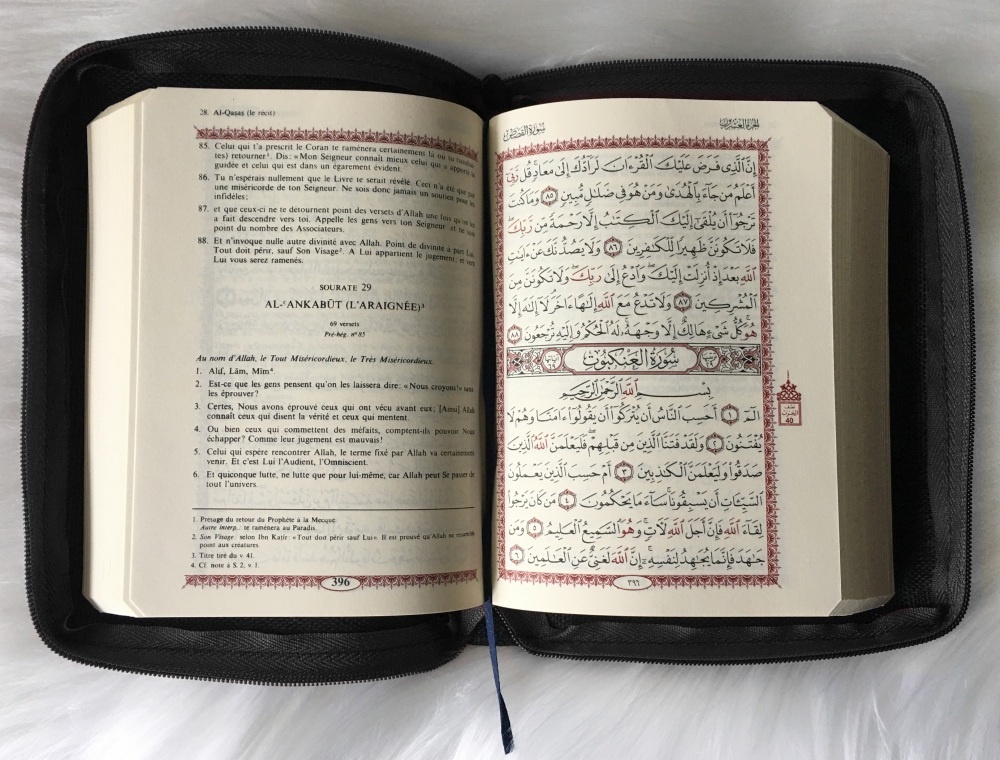 28. Al-Qasas (le récit)
85. Celui qui t'a prescrit le Coran te ramènera certainement là où tu
tes) retourner¹. Dis: «Mon Seigneur connaît mieux celui qui a apporté la
guidée et celui qui est dans un égarement évident.
86. Tu n'espérais nullement que le Livre te serait révélé. Ceci n'a été que par
une miséricorde de ton Seigneur. Ne sois donc jamais un soutien pour les
infidèles;
87. et que ceux-ci ne te détournent point des versets d'Allah une fois qu'on les
a fait descendre vers toi. Appelle les gens vers ton Seigneur et ne sois
point du nombre des Associateurs.
88. Et n'invoque nulle autre divinité avec Allah. Point de divinité à part Lui.
Tout doit périr, sauf Son Visage². A Lui appartient le jugement; et vers
Lui vous serez ramenés.
SOURATE 29
AL-ʿANKABŪT (L'ARAIGNÉE)³
69 versets
Pré-hég. n° 85
Au nom d'Allah, le Tout Miséricordieux, le Très Miséricordieux.
1. Alif, Lâm, Mîm⁴.
2. Est-ce que les gens pensent qu'on les laissera dire: «Nous croyons!» sans
les éprouver?
3. Certes, Nous avons éprouvé ceux qui ont vécu avant eux; [Ainsi] Allah
connaît ceux qui disent la vérité et ceux qui mentent.
4. Ou bien ceux qui commettent des méfaits, comptent-ils pouvoir Nous
échapper? Comme leur jugement est mauvais!
5. Celui qui espère rencontrer Allah, le terme fixé par Allah va certainement
venir. Et c'est Lui l'Audient, l'Omniscient.
6. Et quiconque lutte, ne lutte que pour lui-même, car Allah peut Se passer de
tout l'univers.
1. Présage du retour du Prophète à la Mecque.
Autre interp.: te ramènera au Paradis.
2. Son Visage: selon Ibn Katîr: «Tout doit périr sauf Lui». Il est prouvé qu'Allah ne ressemble
point aux créatures.
3. Titre tiré du v. 41.
4. Cf. note à S. 2, v. 1.
396
سورة القصص الجزء العشرون
إِنَّ ٱلَّذِى فَرَضَ عَلَيْكَ ٱلْقُرْءَانَ لَرَآدُّكَ إِلَىٰ مَعَادٍۚ قُل رَّبِّىٓ
أَعْلَمُ مَن جَآءَ بِٱلْهُدَىٰ وَمَنْ هُوَ فِى ضَلَٰلٍ مُّبِينٍ ٨٥ وَمَا كُنتَ
تَرْجُوٓا۟ أَن يُلْقَىٰٓ إِلَيْكَ ٱلْكِتَٰبُ إِلَّا رَحْمَةً مِّن رَّبِّكَۖ
فَلَا تَكُونَنَّ ظَهِيرًا لِّلْكَٰفِرِينَ ٨٦ وَلَا يَصُدُّنَّكَ عَنْ ءَايَٰتِ
ٱللَّهِ بَعْدَ إِذْ أُنزِلَتْ إِلَيْكَۖ وَٱدْعُ إِلَىٰ رَبِّكَۖ وَلَا تَكُونَنَّ مِنَ
ٱلْمُشْرِكِينَ ٨٧ وَلَا تَدْعُ مَعَ ٱللَّهِ إِلَٰهًا ءَاخَرَۘ لَآ إِلَٰهَ إِلَّا
هُوَۚ كُلُّ شَىْءٍ هَالِكٌ إِلَّا وَجْهَهُۥۚ لَهُ ٱلْحُكْمُ وَإِلَيْهِ تُرْجَعُونَ ٨٨
سورة العنكبوت
بِسْمِ ٱللَّهِ ٱلرَّحْمَٰنِ ٱلرَّحِيمِ
الٓمٓ ١ أَحَسِبَ ٱلنَّاسُ أَن يُتْرَكُوٓا۟ أَن يَقُولُوٓا۟ ءَامَنَّا وَهُمْ لَا
يُفْتَنُونَ ٢ وَلَقَدْ فَتَنَّا ٱلَّذِينَ مِن قَبْلِهِمْۖ فَلَيَعْلَمَنَّ ٱللَّهُ ٱلَّذِينَ
صَدَقُوا۟ وَلَيَعْلَمَنَّ ٱلْكَٰذِبِينَ ٣ أَمْ حَسِبَ ٱلَّذِينَ يَعْمَلُونَ
ٱلسَّيِّـَٔاتِ أَن يَسْبِقُونَاۚ سَآءَ مَا يَحْكُمُونَ ٤ مَن كَانَ يَرْجُوا۟
لِقَآءَ ٱللَّهِ فَإِنَّ أَجَلَ ٱللَّهِ لَءَاتٍۚ وَهُوَ ٱلسَّمِيعُ ٱلْعَلِيمُ ٥ وَمَن
جَٰهَدَ فَإِنَّمَا يُجَٰهِدُ لِنَفْسِهِۦٓۚ إِنَّ ٱللَّهَ لَغَنِىٌّ عَنِ ٱلْعَٰلَمِينَ ٦
نصف
الحزب
40
٣٩٦